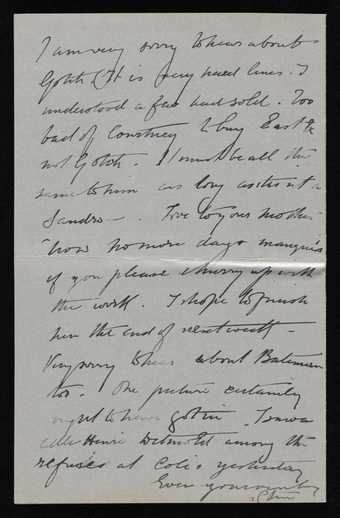 I am very sorry to hear about
Gotch (It is very hard lines. I
understood a few had sold. Too
bad of Courtney to buy East &
not Gotch. It must be all the
same to him as long as it is a
Sandro. Love to your mother
now no more days
if you please & hurry up with
the work. I hope to finish
the end of next week.
Very sorry to hear about Bateman
too. One picture certainly
ought to have got in. I saw a
Henri Detmold among the
refusés at Cols. yesterday
Ever yours